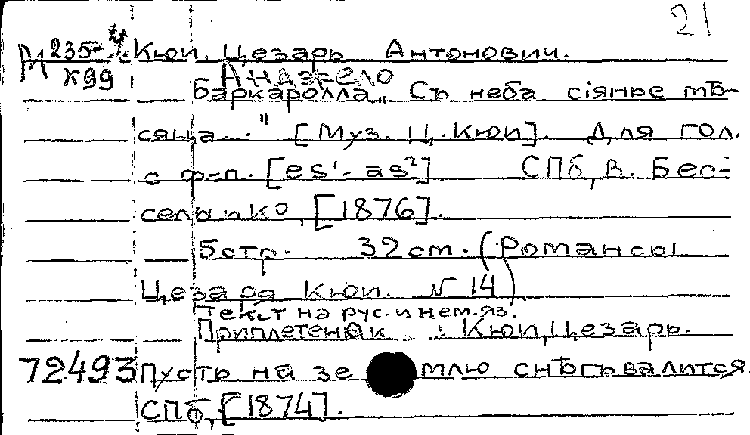 21
М 235-4 Кюи, Цезарь Антонович.
К99 Анджело
Баркаролла „Съ неба сіянье мѣ-
сяца..." [Муз. Ц. Кюи]. Для гол.
с ф-п. [es¹-as²] СПб, В. Бес-
сель и К⁰, [1876].
5 стр. 32 cm. (Романсы
Цезаря Кюи. № 14)
Текст на рус. и нем. яз.
Приплетен к: Кюи, Цезарь.
72493 Пусть на землю снѣгъ валится.
СПб, [1874].